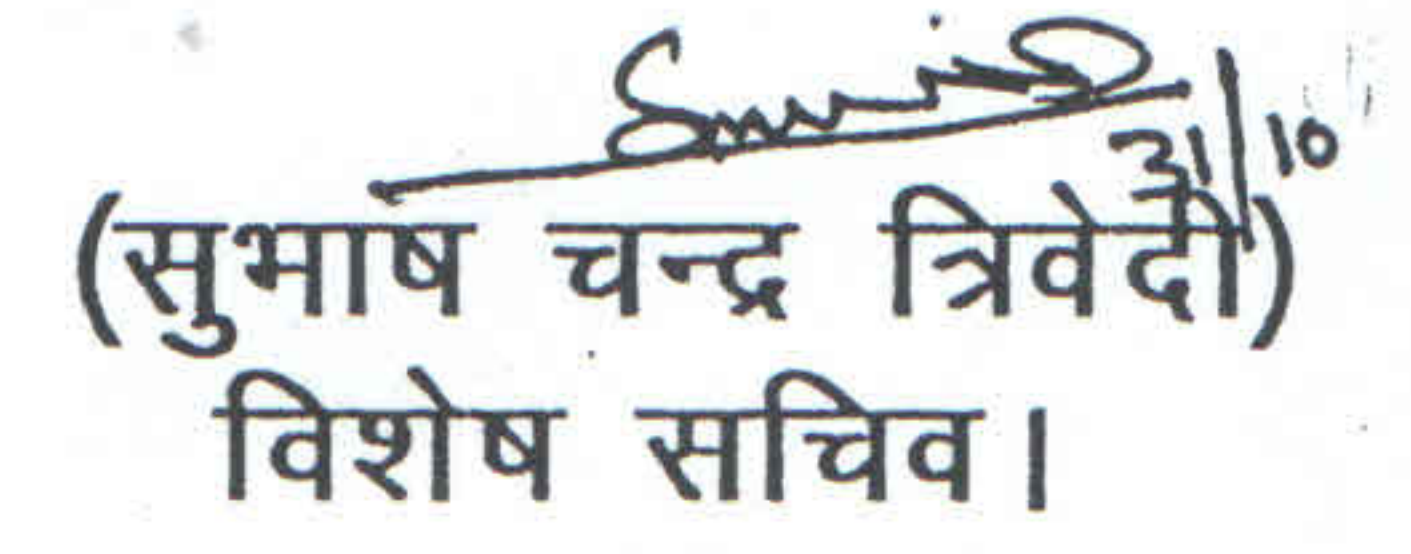 31/10
(सुभाष चन्द्र त्रिवेदी)
विशेष सचिव।